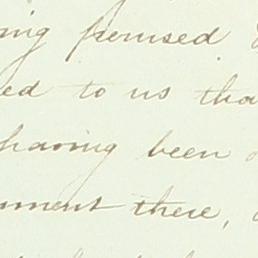 ing perused
ed to us tha
having been
ment there,